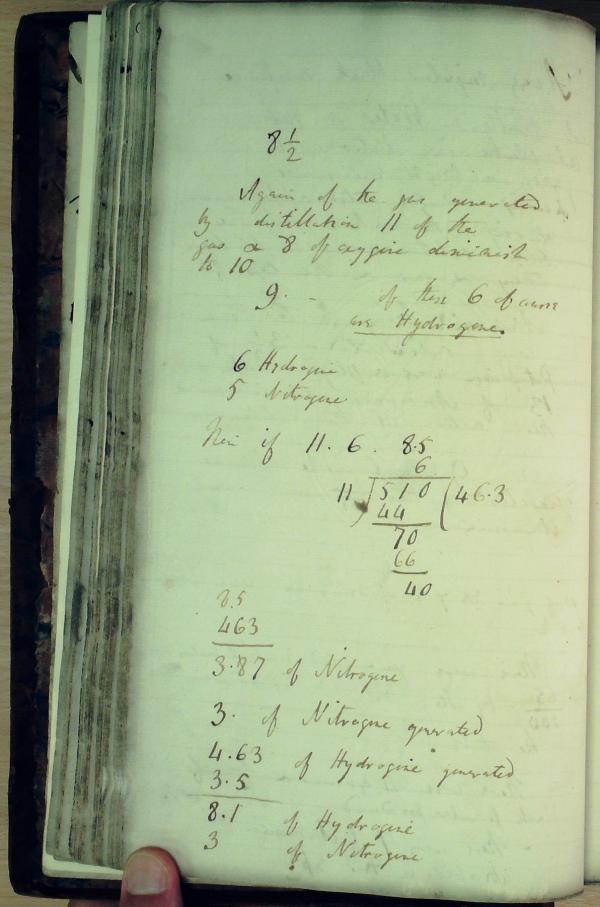 8 1/2
Again of the gas generated
by distillation 11 of the
gas & 8 of oxygine diminish
to 10
9. - of these 6 of course
are Hydrogene.
6 Hydrogine
5 Nitrogine
Now if 11. 6. 8.5
6
11) 510 (46.3
44
70
66
40
8.5
463
3.87 of Nitrogine
3. of Nitrogne generated
4.63 of Hydrogine generated
3.5
8.1 of Hydrogine
3 of Nitrogine